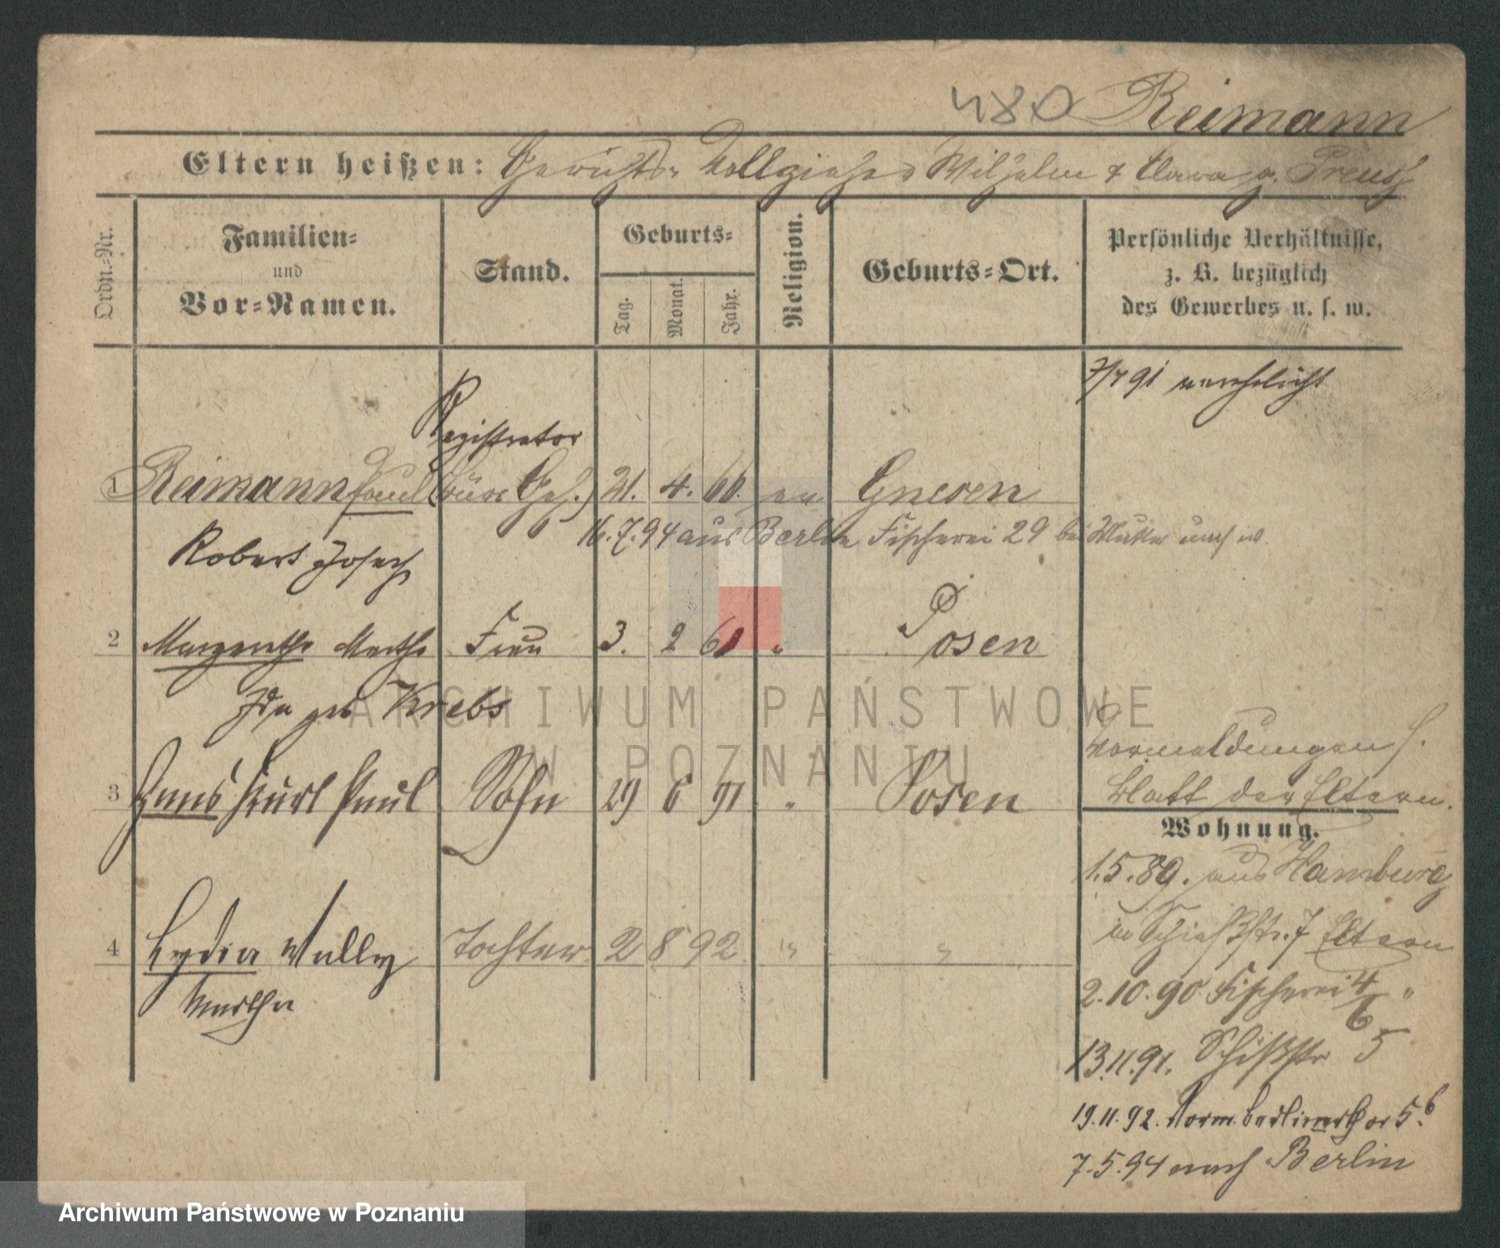 480 Reimann
Eltern heißen: Gerichts-Vollzieher Wilhelm & Clara g. Preuß
Ordn.-Nr.
Familien-
und
Vor-Namen.
Stand.
Geburts-
Tag.
Monat.
Jahr.
Religion.
Geburts-Ort.
Persönliche Verhältnisse,
z. B. bezüglich
des Gewerbes u. s. w.
91 verehelicht
Registrator
1 Reimann Paul (Büro Geh.) 21. 4. 66. ev Gnesen
16.7.94 aus Berlin Fischerei 29 bei Mutter
Robert Josef
2 Margarethe Martha Frau 3. 2 61 " Posen
Ida geb Krebs
Vormeldungen s.
Blatt der Eltern.
3 Hans Kurl Paul Sohn 29 6 91 " Posen
Wohnung.
1.5.89. aus Hamburg
in Schießstr. 7 Eltern
4 Lydia Wally Tochter 2 8 92 " "
Martha
2.10.90 Fischerei 4/6 "
13.11.91. Schießstr 5
19.11.92. Vorm. Berlinerthor 5.b
7.5.94 nach Berlin
ARCHIWUM PAŃSTWOWE
W POZNANIU
Archiwum Państwowe w Poznaniu